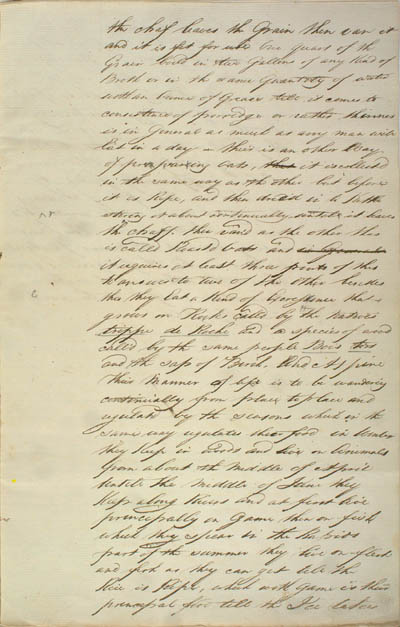 the chaf leaves the Grain then van it
and it is fit for use one quart of the
Grain boild in two Gallons of any kind of
Broth or in the same Quantity of water
with an ounce of Grease till it comes to
consistence of porridge or rather thinner
is in General as much as any man will
Eat in a day — their is an other Way
of preparing oats, it is collected
in the same way as the other but before
it is Ripe, and then dried in a
strong it about continually untill it leaves
the chaff. then as the other this
is called Roasd oats and
it requires at least three pints of this
to answer to two of the other besides
this they Eat a kind of that
grows on Rock called by the natives
trippe de Roche and a species of wood
called by the same people Bois tors
and the sap of Birch. And pine
their Manner of life is to be wandering
continually from place to place and
regulate by the seasons which in the
same way regulates their food in winter
they keep in woods and live on Animals
from about the Middle of April
untill the middle of June they
keep along Rivers and at first live
principally on Game then on fish
which they spear in the Rapids
part of the summer they live on flesh
and fish as they can get till the
Rice is Ripe, which with Game is their
principal food till the Ice takes